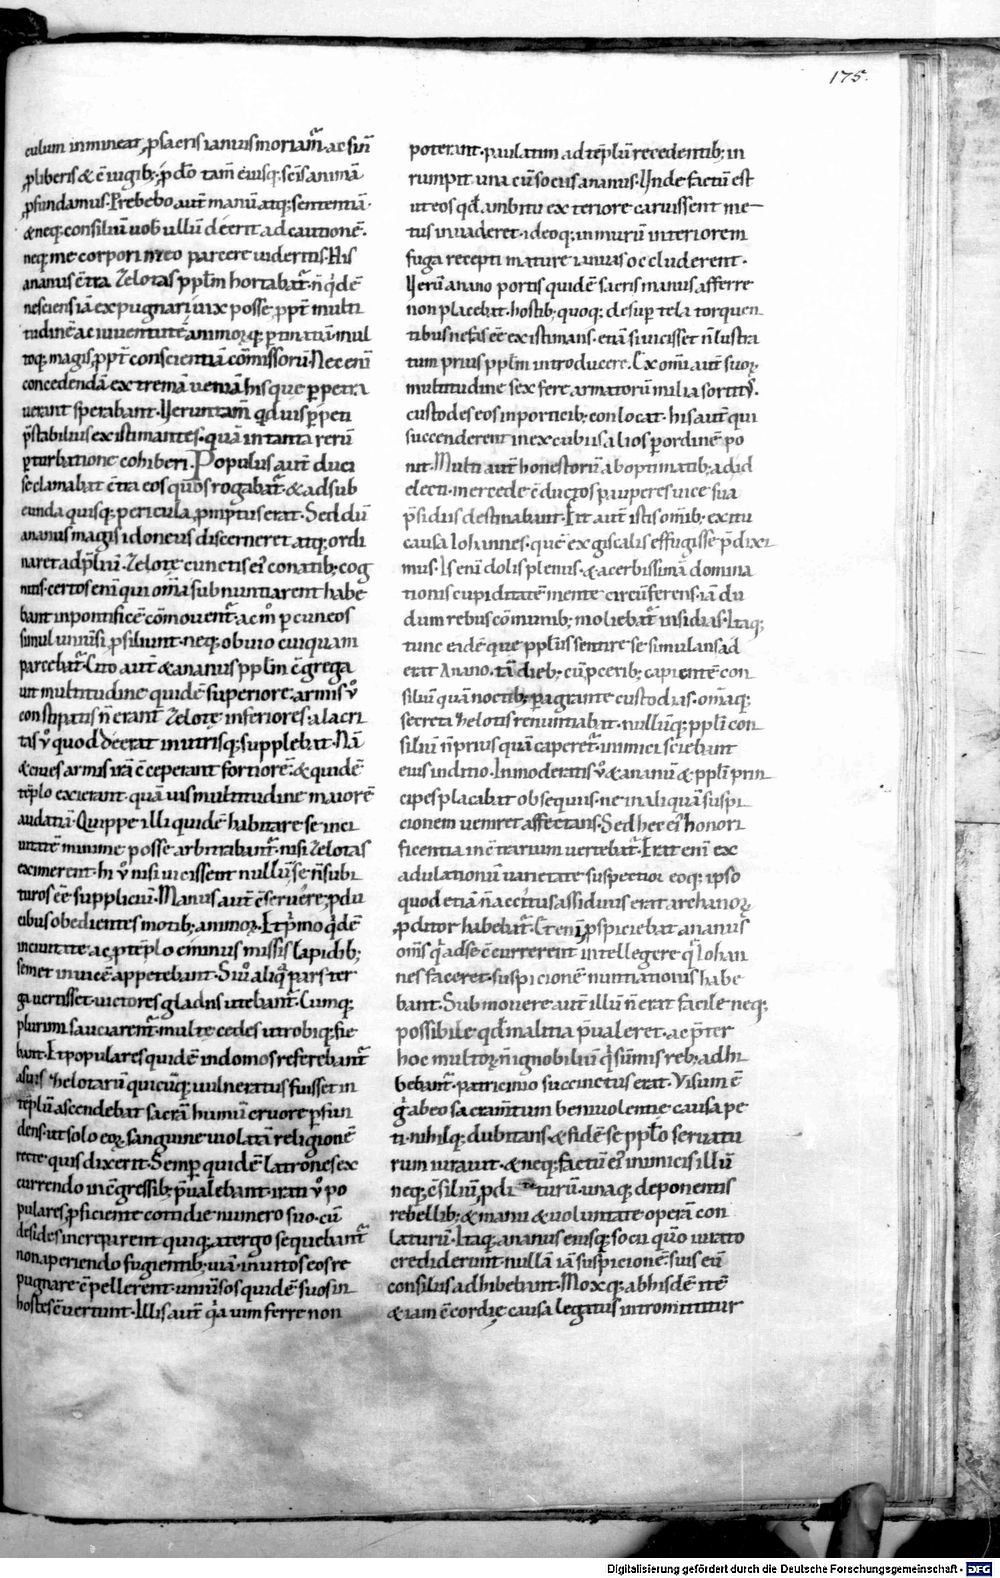 175.
culum inmineat, ꝓsacris ianuis moriam̃. ac sin̄
ꝓliberis & c̄iugib; ꝓ dō tam̄ eiusq; sc̄is animā
ꝓfundamus. Prebebo aut̄ manū atq; sententiā.
& neq; consiliū uob̄ ullū deerit ad cautionē.
neq; me corpori meo parcere uidertis. His
ananus c̄tra Zelotas ppl̄m hortabat̃. n̄ qdē
nesciens iā expugnari uix posse, ꝓpt̄ multi
tudinē ac iuuentutē animorꝗ ꝑtinatiā. mul
toq; magis, ꝓpt̄ conscientiā cōmissorū. Nec enī
concedendā extremā ueniā his que ꝑpetra
uerant sperabant. Ueruntam̄ qđuis ꝑpeti
p̄stabilius existimantes. quā in tanta rerū
ꝑturbatione cohiberi. Populus aut̄ duci
se clamabat c̄tra eos quos rogabat̃. & ad sub
eunda quisq; pericula, ꝓmptus erat. Sed dū
ananus magis idoneus discerneret atq; ordi
naret ad p̄liū. Zelote cunctis ei conatib; cog
nitis. certos enī qui om̄ia sub nuntiarent habe
bant in pontificē cōmouent̃. ac m̊ ꝑ cuneos
simul uniūsi ꝓsiliunt. neq; obuio cuiquam
parcebat̃. Cito aut̄ & ananus ppl̄m c̄grega
uit multitudine quidē superiore. armis ů
constipatis n̄ erant Zelote inferiores. alacri
tas ů quod deerat in utrisq; supplebat. Nā
& ciues armis irā c̄ceperant fortiorē. & quidē
tēplo exierant. quā uis multitudine maiorē
audatiā. Quippe illi quidē habitare se in ci
uitatē minime posse arbitrabant̃. nisi Zelotas
eximerent. hi ů nisi uicissent nullū se n̄ subi
turos ēē suppliciū. Manus aut̄ c̄seruere, ꝓdu
cibus obedientes motib; animorꝗ. Et p̄mo qdē
in ciuitate ac, ꝓ tēplo eminus missis lapidib;
semet inuicē appetebant. Siů aliq pars ter
ga uertisset. uictores gladiis utebant̃. Cumq;
plurimi sauciarent̃. multe cedes utrobiq; fie
bant. Et populares quidē in domos referebant̃
a suis Zelotarū quicūq; uulneratus fuisset in
tēplū ascendebat sacrā humū cruore ꝑfun
dens. ut solo eorꝗ sanguine uiolatā religionē
recte quis dixerit. Semꝑ quidē latrones ex
currendo in c̄gressib; p̄ualebant. irati ů po
pulares, ꝓficiente cotidie numero suo. cū
desides increparent quiq; a tergo sequebant̃
non aperiendo fugientib; uiā. inuitos eos re
pugnare c̄pellerent. uniūsos quidē suos in
hostes c̄uertunt. Illis aut̄ qa uim ferre non
poterant. paulatim ad tēplū recedentib; in
rumpit una cū sociis ananus. Unde factū est
ut eos qđ ambitu exteriore caruissent me-
tus inuaderet. ideoq; in murū interiorem
fuga recepti mature ianuas occluderent.
Uerū anano portis quidē sacris manus afferre
non placebat. hostib; quoq; desuꝑ tela torquen
tibus nefas ēē existimans. etiā si uicisset n̄ lustra
tum prius ppl̄m introducere. Ex om̄i aut̄ suorꝗ
multitudine sex fere armatorū milia sortitꝰ.
custodes eos in porticib; conlocat. his aut̄ qui
succenderent in excubiis alios ꝑ ordinē po
nit. Multi aut̄ honestiorū ab optimatib; ad id
electi. mercede c̄ductos pauperes uice sua
p̄sidiis destinabant. Fit aut̄ istis om̄ib; exitii
causa Iohannes. quē ex giscalis effugisse p̄dixi
mus. Is enī dolis plenus. & acerbissimā domina
tionis cupiditatē mente circūferens. iā du
dum rebus cōmunib; moliebat̃ insidias. Itaq;
tunc eadē que ppl̄us sentire se simulans ad
erat Anano. tā dieb; cū pceib; capientē con
siliū quā noctib; ꝑagrante custodias. om̄iaq;
secreta Zelotis renuntiabat. nullūq; ppl̄i con
siliū n̄ prius quā caperet̃. inimici sciebant
eius inditio. Inmoderatis ů & ananū & ppl̄i prin
cipes placabat obsequiis. ne in aliquā suspi
cionem ueniret affectans. Sed hec ei honori
ficentia in c̄trarium uertebat̃. Erat enī ex
adulationū uarietate suspectior eoq; ipso
quod etiā n̄ accitus assiduus erat archanorꝗ
ꝓditor habebat̃. Et enī ꝓspiciebat ananus
om̄s q ad se c̄currerent intellegere q Iohan
nes faceret. suspicionē nuntiationis habe
bant. Submouere aut̄ illū n̄ erat facile neq;
possibile qđ malitia p̄ualeret. ac p̄ter
hoc multorꝗ n̄ ignobiliū q sūmis reb; adhi
bebant̃. patricinio succinctus erat. Visum ē
g ab eo sacram̄tum beniuolentie causa pe
ti. nihilq; dubitans. & fidē se ppl̄o seruatu
rum iurauit. & neq; factū ei inimicis illū
neq; c̄siliū, ꝓditurū. unaq; deponentis
rebellib; & manu & uoluntate operā con
laturū. Itaq; ananus eiusq; socii quo iurato
crediderunt. nullā iā suspicionē. suis eū
consiliis adhibebant. Moxq; ab hisdē. itē
& iam c̄cordię causa legatus intromittitur
Digitalisierung gefördert durch die Deutsche Forschungsgemeinschaft - DFG